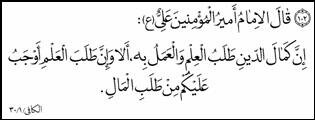 (١٠٢) قالَ الإمامُ أميرُ المُؤمِنينَ عَلِيٌّ (ع):
إنَّ كَمالَ الدّينِ طَلَبُ العِلمِ وَالعَمَلُ بِهِ، ألا وَإنَّ طَلَبَ العِلمِ أوجَبُ
عَلَيكُم مِن طَلَبِ المالِ.
الكافي: ٣٠/١